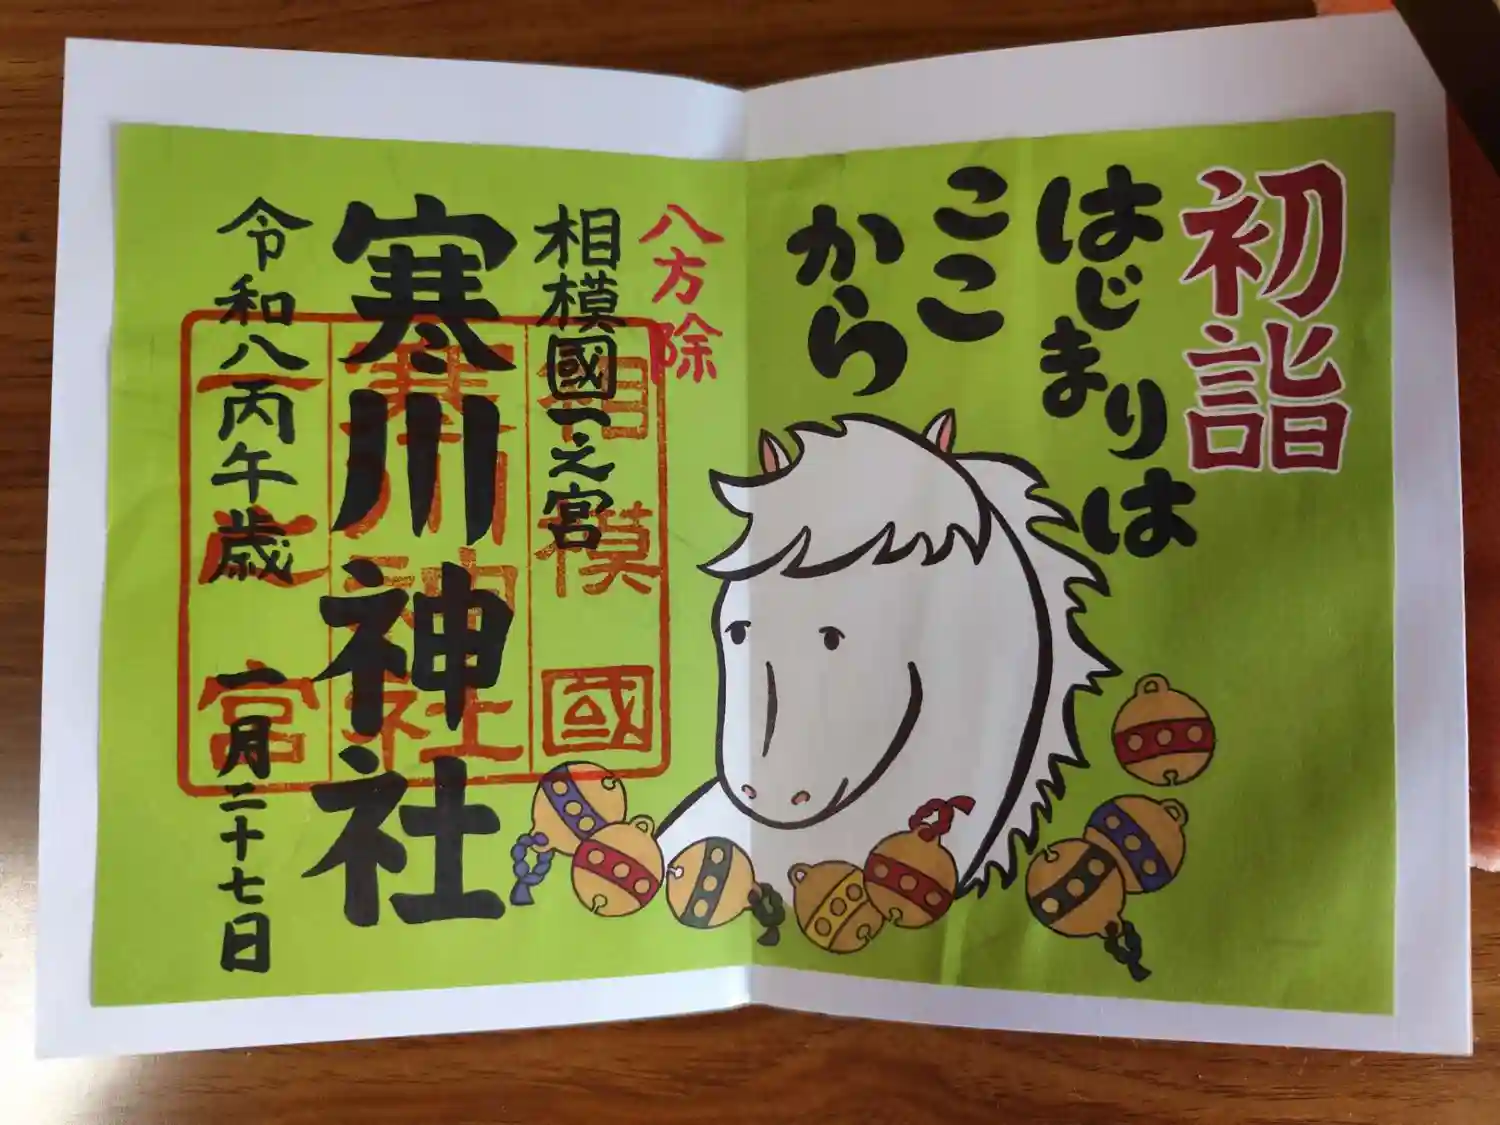 初詣
はじまりは
ここ
から
八方除
相模國一之宮
寒川神社
令和八丙午歳 一月二十七日
相模國
寒川神社
一之宮